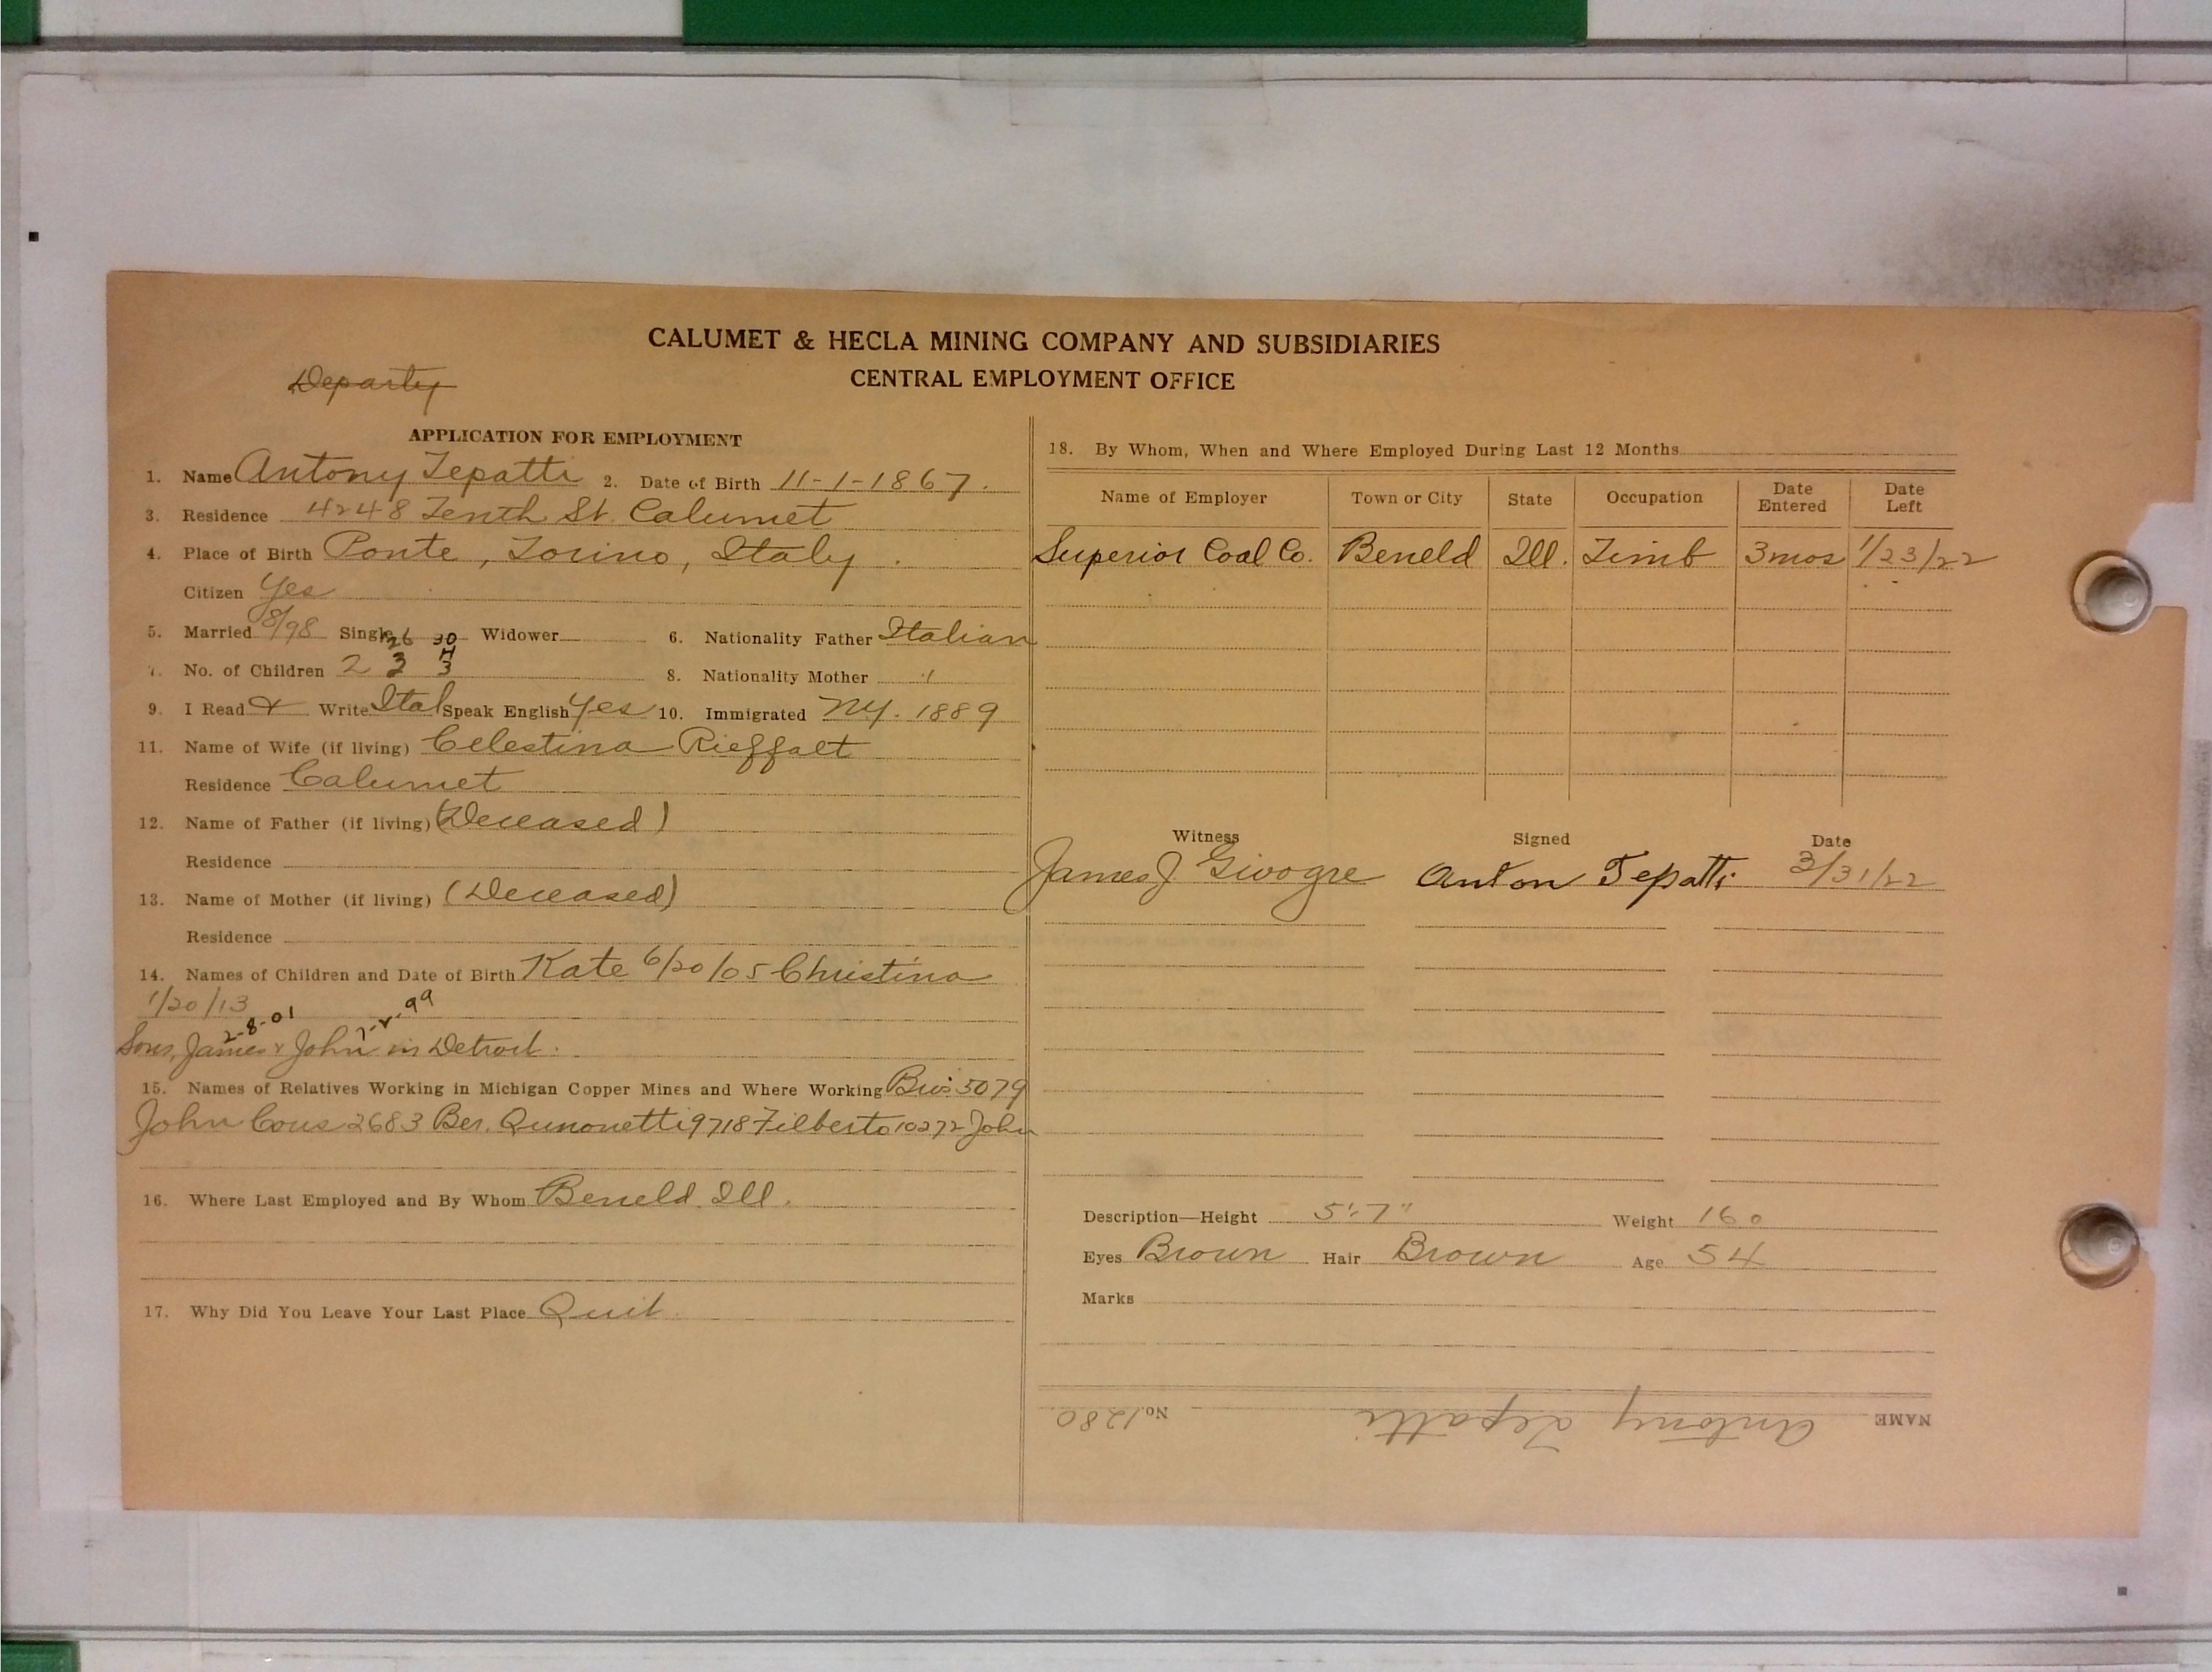 CALUMET & HECLA MINING COMPANY AND SUBSIDIARIES
CENTRAL EMPLOYMENT OFFICE
APPLICATION FOR EMPLOYMENT
1. Name Antony Tepatti 2. Date of Birth 11-1-1867.
3. Residence 4248 Tenth St. Calumet
4. Place of Birth Ponte, Torino, Italy.
Citizen Yes
5. Married 8/98 Single Widower 6. Nationality Father Italian
26 30
7. No. of Children 2 3 3 8. Nationality Mother "
9. I Read & Write Ital Speak English Yes 10. Immigrated N.Y. 1889
11. Name of Wife (if living) Celestina Rieffalt
Residence Calumet
12. Name of Father (if living) (Deceased)
Residence
13. Name of Mother (if living) (Deceased)
Residence
14. Names of Children and Date of Birth Kate 6/20/05 Christina
1/20/13
2-8-01 7-2-99
Sons, James & John in Detroit.
15. Names of Relatives Working in Michigan Copper Mines and Where Working Bro: 5079
John Cous 2683 Ber. Qunonetti 9718 Filberto 10272 John
16. Where Last Employed and By Whom Beneld. Ill.
17. Why Did You Leave Your Last Place Quit
18. By Whom, When and Where Employed During Last 12 Months
Name of Employer Town or City State Occupation Date Entered Date Left
Superior Coal Co. Beneld Ill. Timb 3mos 1/23/22
Witness Signed Date
James J Givogre Anton Tepatti 3/31/22
Description—Height 5'-7" Weight 160
Eyes Brown Hair Brown Age 54
Marks
NAME Antony Tepatti No. 1280